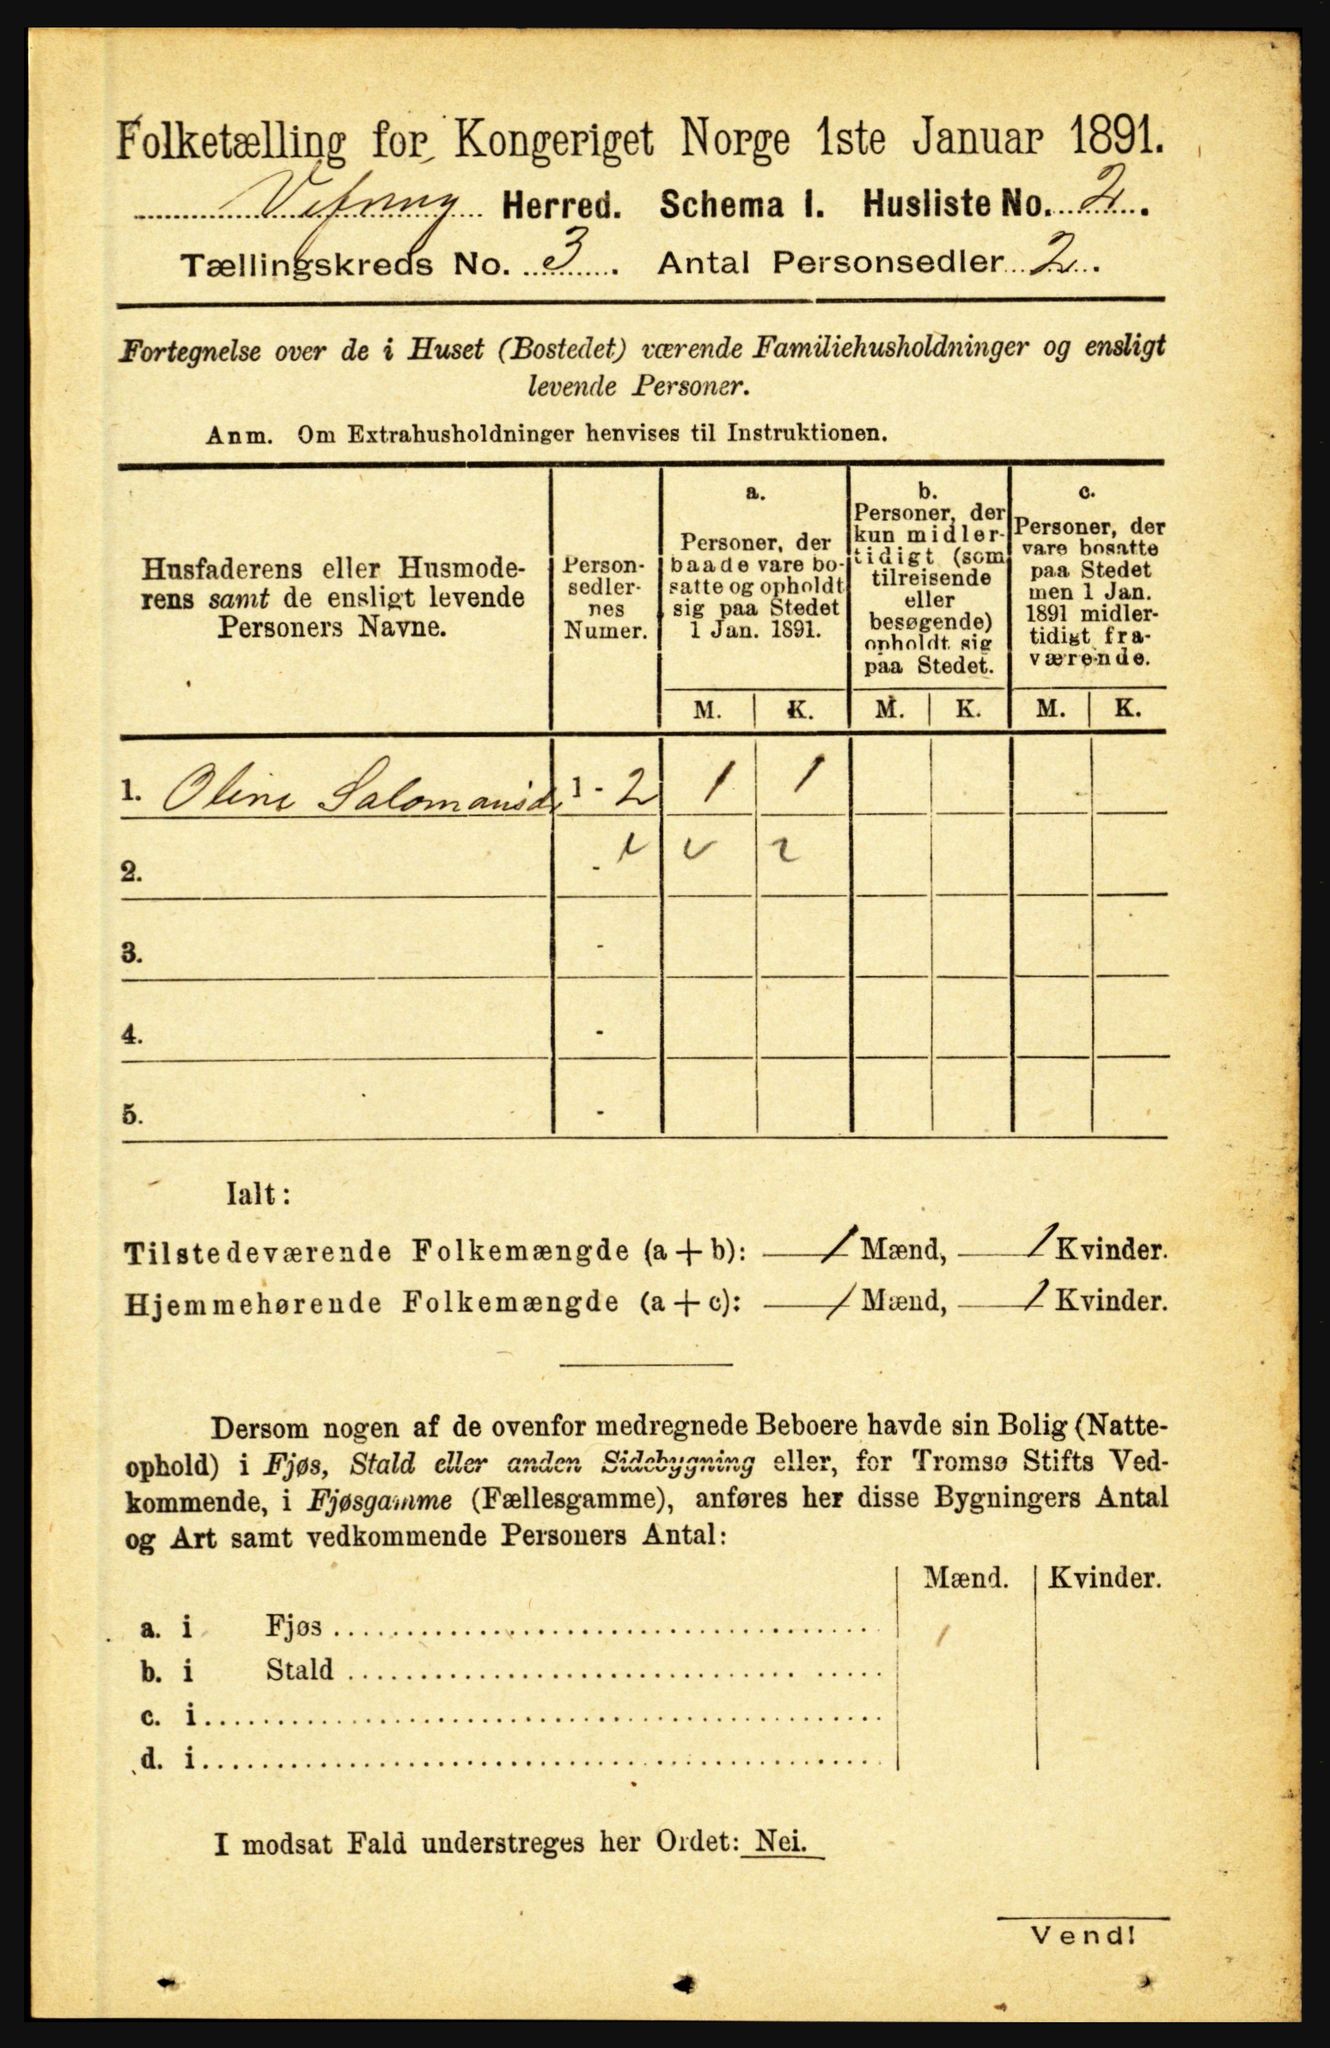 Folketælling for Kongeriget Norge 1ste Januar 1891.
Vefsen Herred. Schema I. Husliste No. 2.
Tællingskreds No. 3. Antal Personsedler 2.
Fortegnelse over de i Huset (Bostedet) værende Familiehusholdninger og ensligt
levende Personer.
Anm. Om Extrahusholdninger henvises til Instruktionen.
Husfaderens eller Husmode-
rens samt de ensligt levende
Personers Navne.
Person-
sedler-
nes
Numer.
a.
Personer, der
baade vare bo-
satte og opholdt
sig paa Stedet
1 Jan. 1891.
b.
Personer, der
kun midler-
tidigt (som
tilreisende
eller
besøgende)
opholdt sig
paa Stedet.
c.
Personer, der
vare bosatte
paa Stedet
men 1 Jan.
1891 midler-
tidigt fra-
værende.
M. K. M. K. M. K.
1. Oline Salomonsd. 1 - 2 1 1
2. -
3. -
4. -
5. -
Ialt:
Tilstedeværende Folkemængde (a + b): 1 Mænd, 1 Kvinder.
Hjemmehørende Folkemængde (a + c): 1 Mænd, 1 Kvinder.
Dersom nogen af de ovenfor medregnede Beboere havde sin Bolig (Natte-
ophold) i Fjøs, Stald eller anden Sidebygning eller, for Tromsø Stifts Ved-
kommende, i Fjøsgamme (Fællesgamme), anføres her disse Bygningers Antal
og Art samt vedkommende Personers Antal:
Mænd. Kvinder.
a. i Fjøs
b. i Stald
c. i
d. i
I modsat Fald understreges her Ordet: Nei.
Vend!